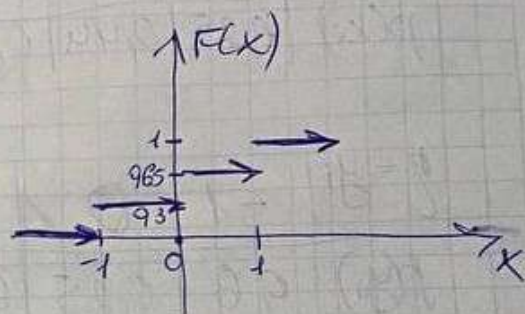 F(X)
1
0,65
0,3
-1 0 1 X